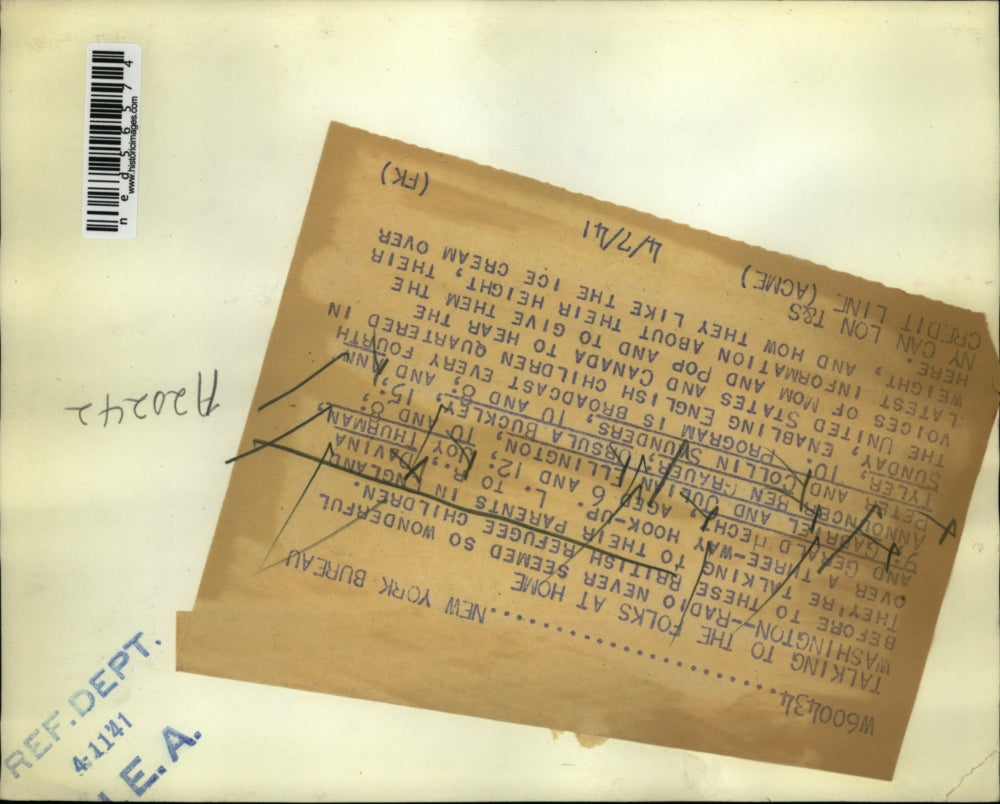 W600434..................NEW YORK BUREAU
TALKING TO THE FOLKS AT HOME
WASHINGTON--RADIO NEVER SEEMED SO WONDERFUL
BEFORE TO THESE BRITISH REFUGEE CHILDREN.
THEY'RE TALKING TO THEIR PARENTS IN ENGLAND
OVER A THREE-WAY HOOK-UP. L. TO R., DAVINA
AND GERALD HECHT, AGED 6 AND 12. JOY THURMAN,
9; GABRIEL AND JULIAN ELLINGTON, 10 AND 8;
ANNOUNCER BEN GRAUER; URSULA BUCKLEY, 15; ANN
PETER AND COLLIN SUNDERS, 10 AND 8; AND,
TYLER, 10. PROGRAM IS BROADCAST EVERY FOURTH
SUNDAY, ENABLING ENGLISH CHILDREN QUARTERED IN
THE UNITED STATES AND CANADA TO HEAR THE
VOICES OF MOM AND POP AND TO GIVE THEM THE
LATEST INFORMATION ABOUT THEIR HEIGHT, THEIR
WEIGHT, AND HOW THEY LIKE THE ICE CREAM OVER
HERE.
NY CAN LON T&S
CREDIT LINE (ACME) 4/7/41 (FK)
A20242
REF. DEPT.
4-11'41
E.A.
ned56574
www.historicimages.com